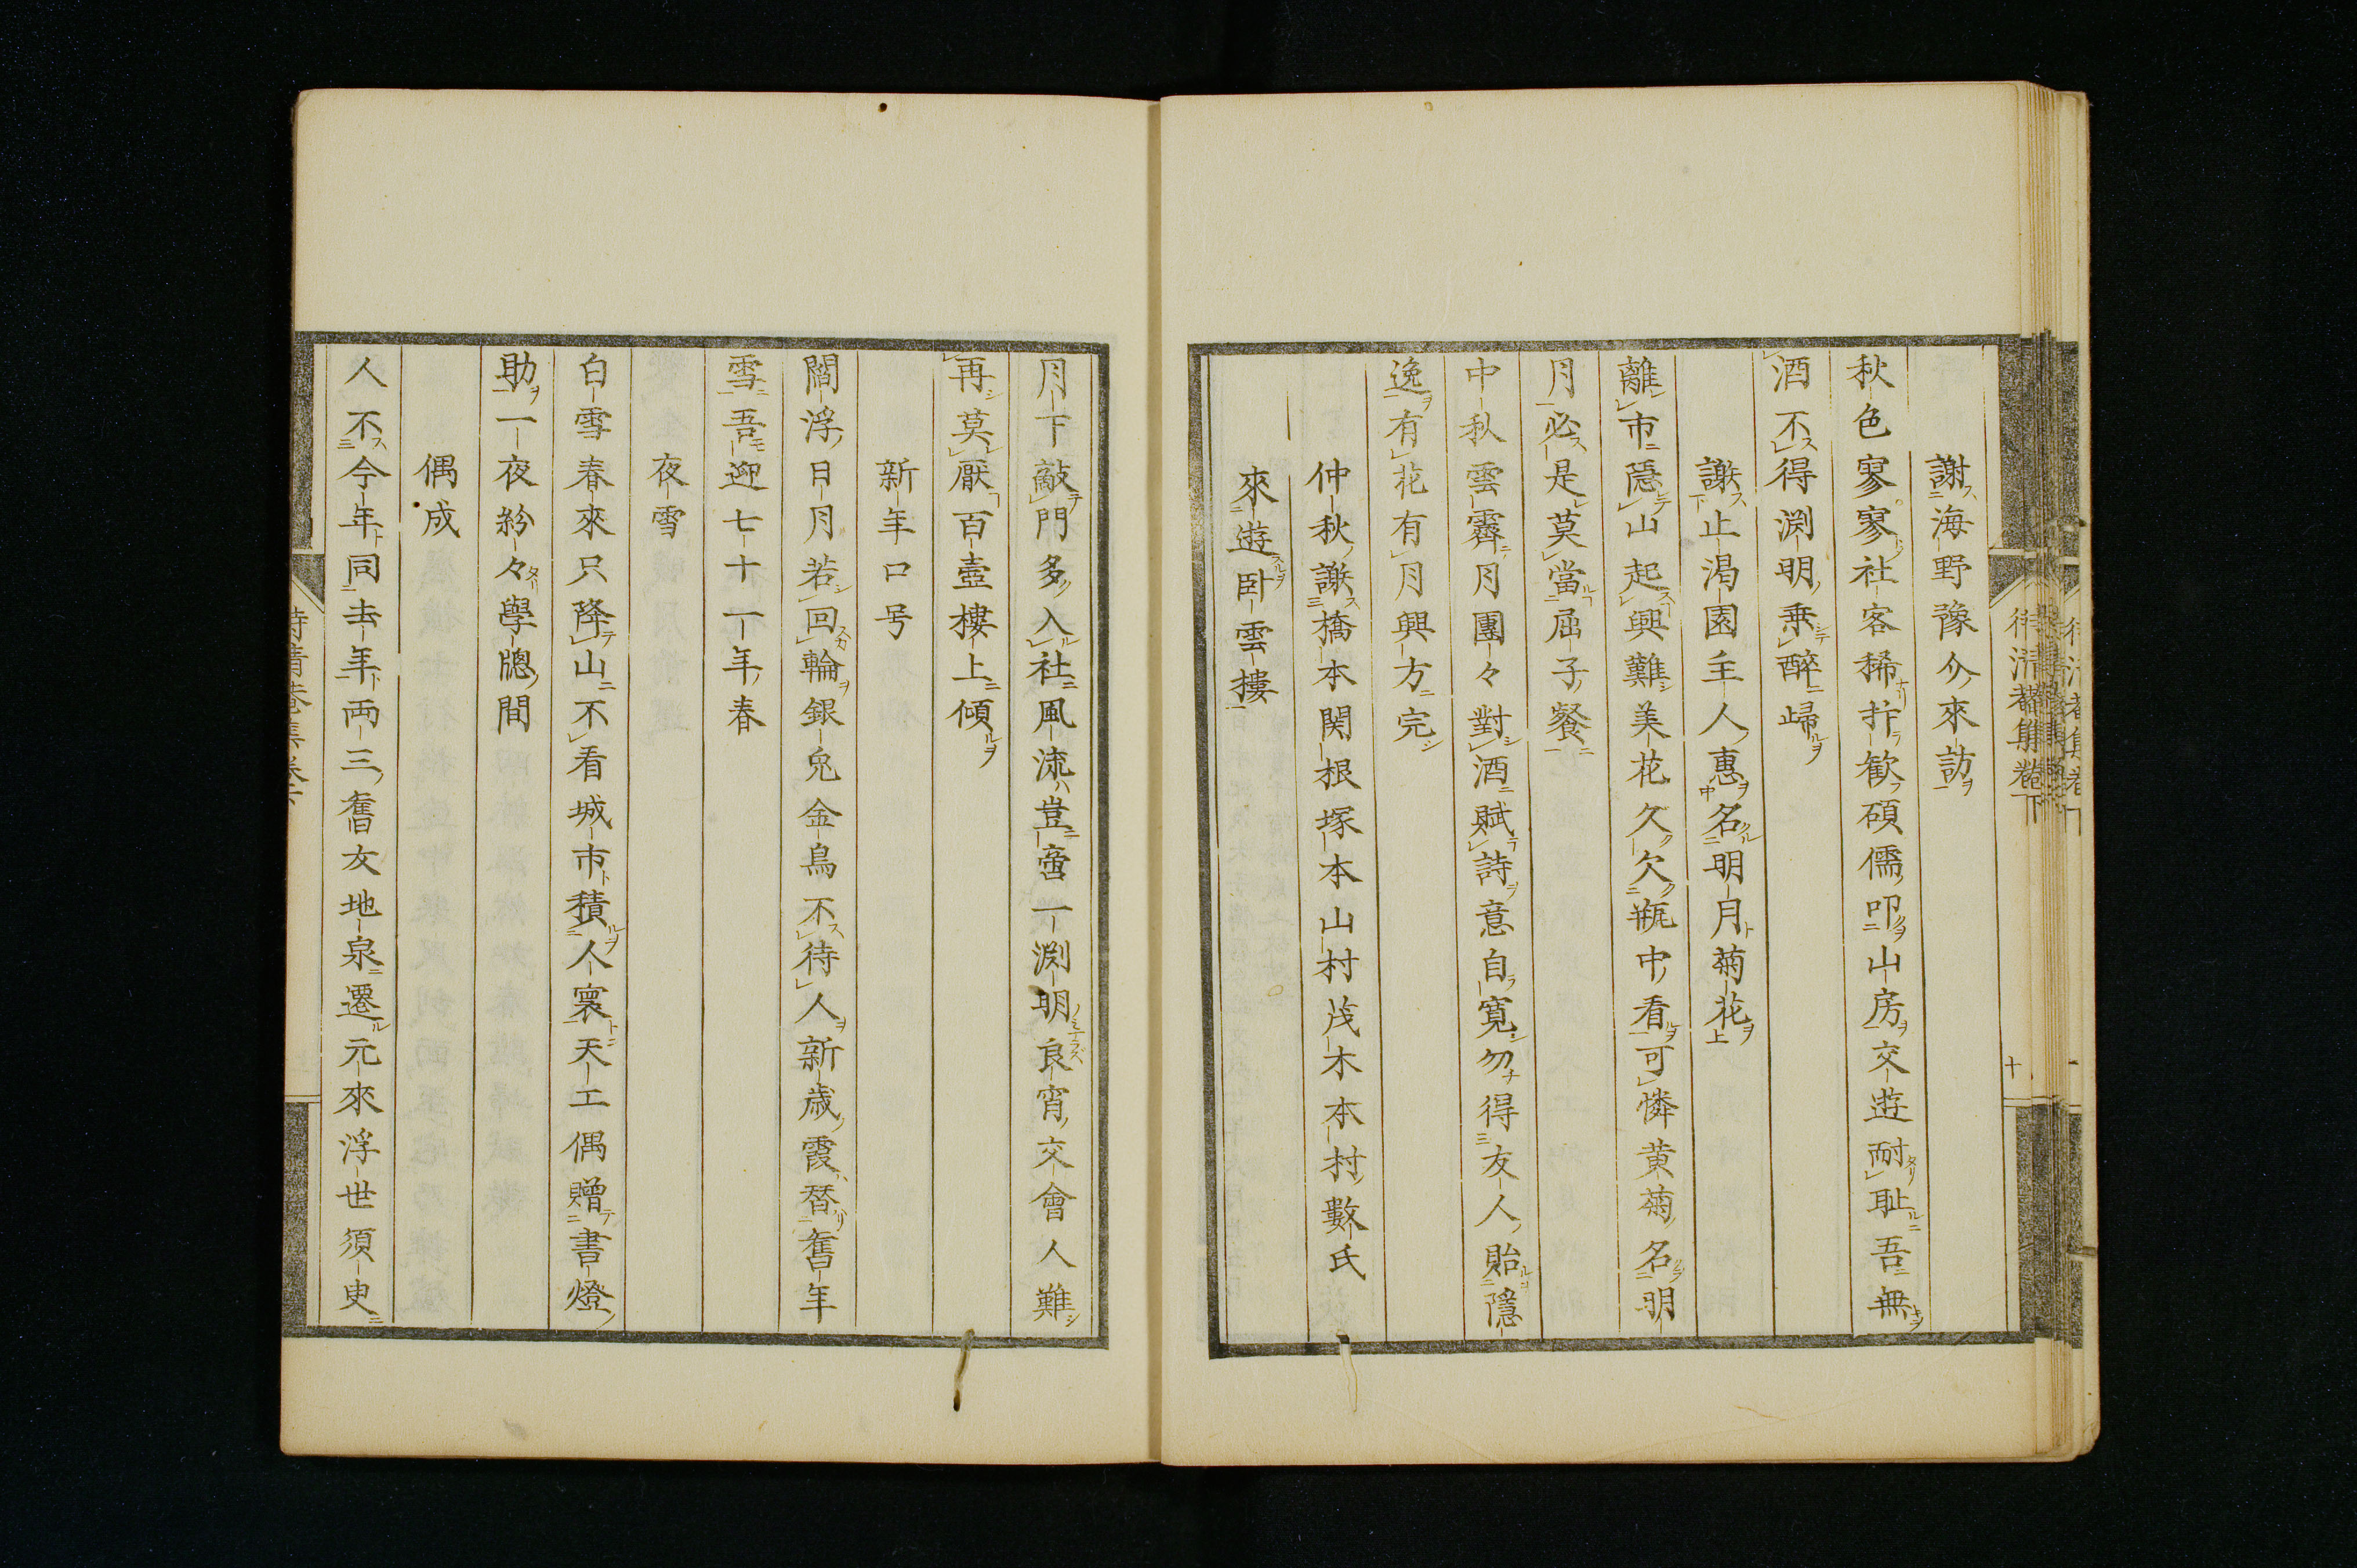 謝海野豫介來訪
秋色寥寥社客稀拤歓碩儒叩山房交遊耐耻吾無
酒不得渊明乗醉歸
謝止渇園主人惠名明月菊花
離市隱山起興難美花久欠瓶中看可憐黄菊名明
月必是莫當屈子餐
中秋雲霽月團々對酒賦詩意自寛勿得友人貽隱
逸有花有月興方完
仲秋謝橋本関根塚本山村茂木本村數氏
來遊卧雲樓
月下敲門多入社風流豈啻一渊明良宵交會人難
再莫厭百壺樓上傾
新年口号
閻浮日月若回輪銀兎金烏不待人新歳霞替舊年
雪吾迎七十一年春
夜雪
白雪春來只降山不看城市積人寰天工偶贈書燈
助一夜紛々學牕間
偶成
人不今年同去年両三舊友地泉遷元來浮世須臾